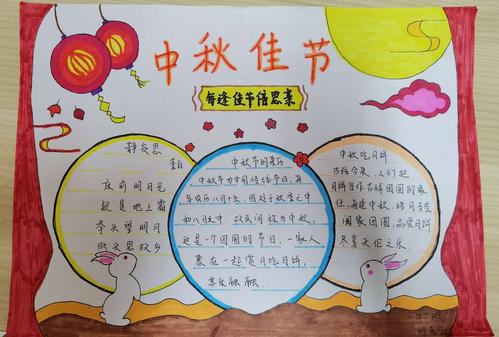 中秋佳节
每逢佳节倍思亲
静夜思
李白
床前明月光
疑是地上霜
举头望明月
低头思故乡
中秋节的来历
中秋节为中国传统节日,为
每年农历八月十五,因处于秋季之中
和八月之中,故民间称为中秋,
这是一个团圆的节日,一家人
聚在一起赏月吃月饼,
其乐融融。
中秋吃月饼
古往今来,人们把
月饼当作吉祥团圆的象
征,每逢中秋,皓月当空
阖家团圆,品饼赏月
尽享天伦之乐。